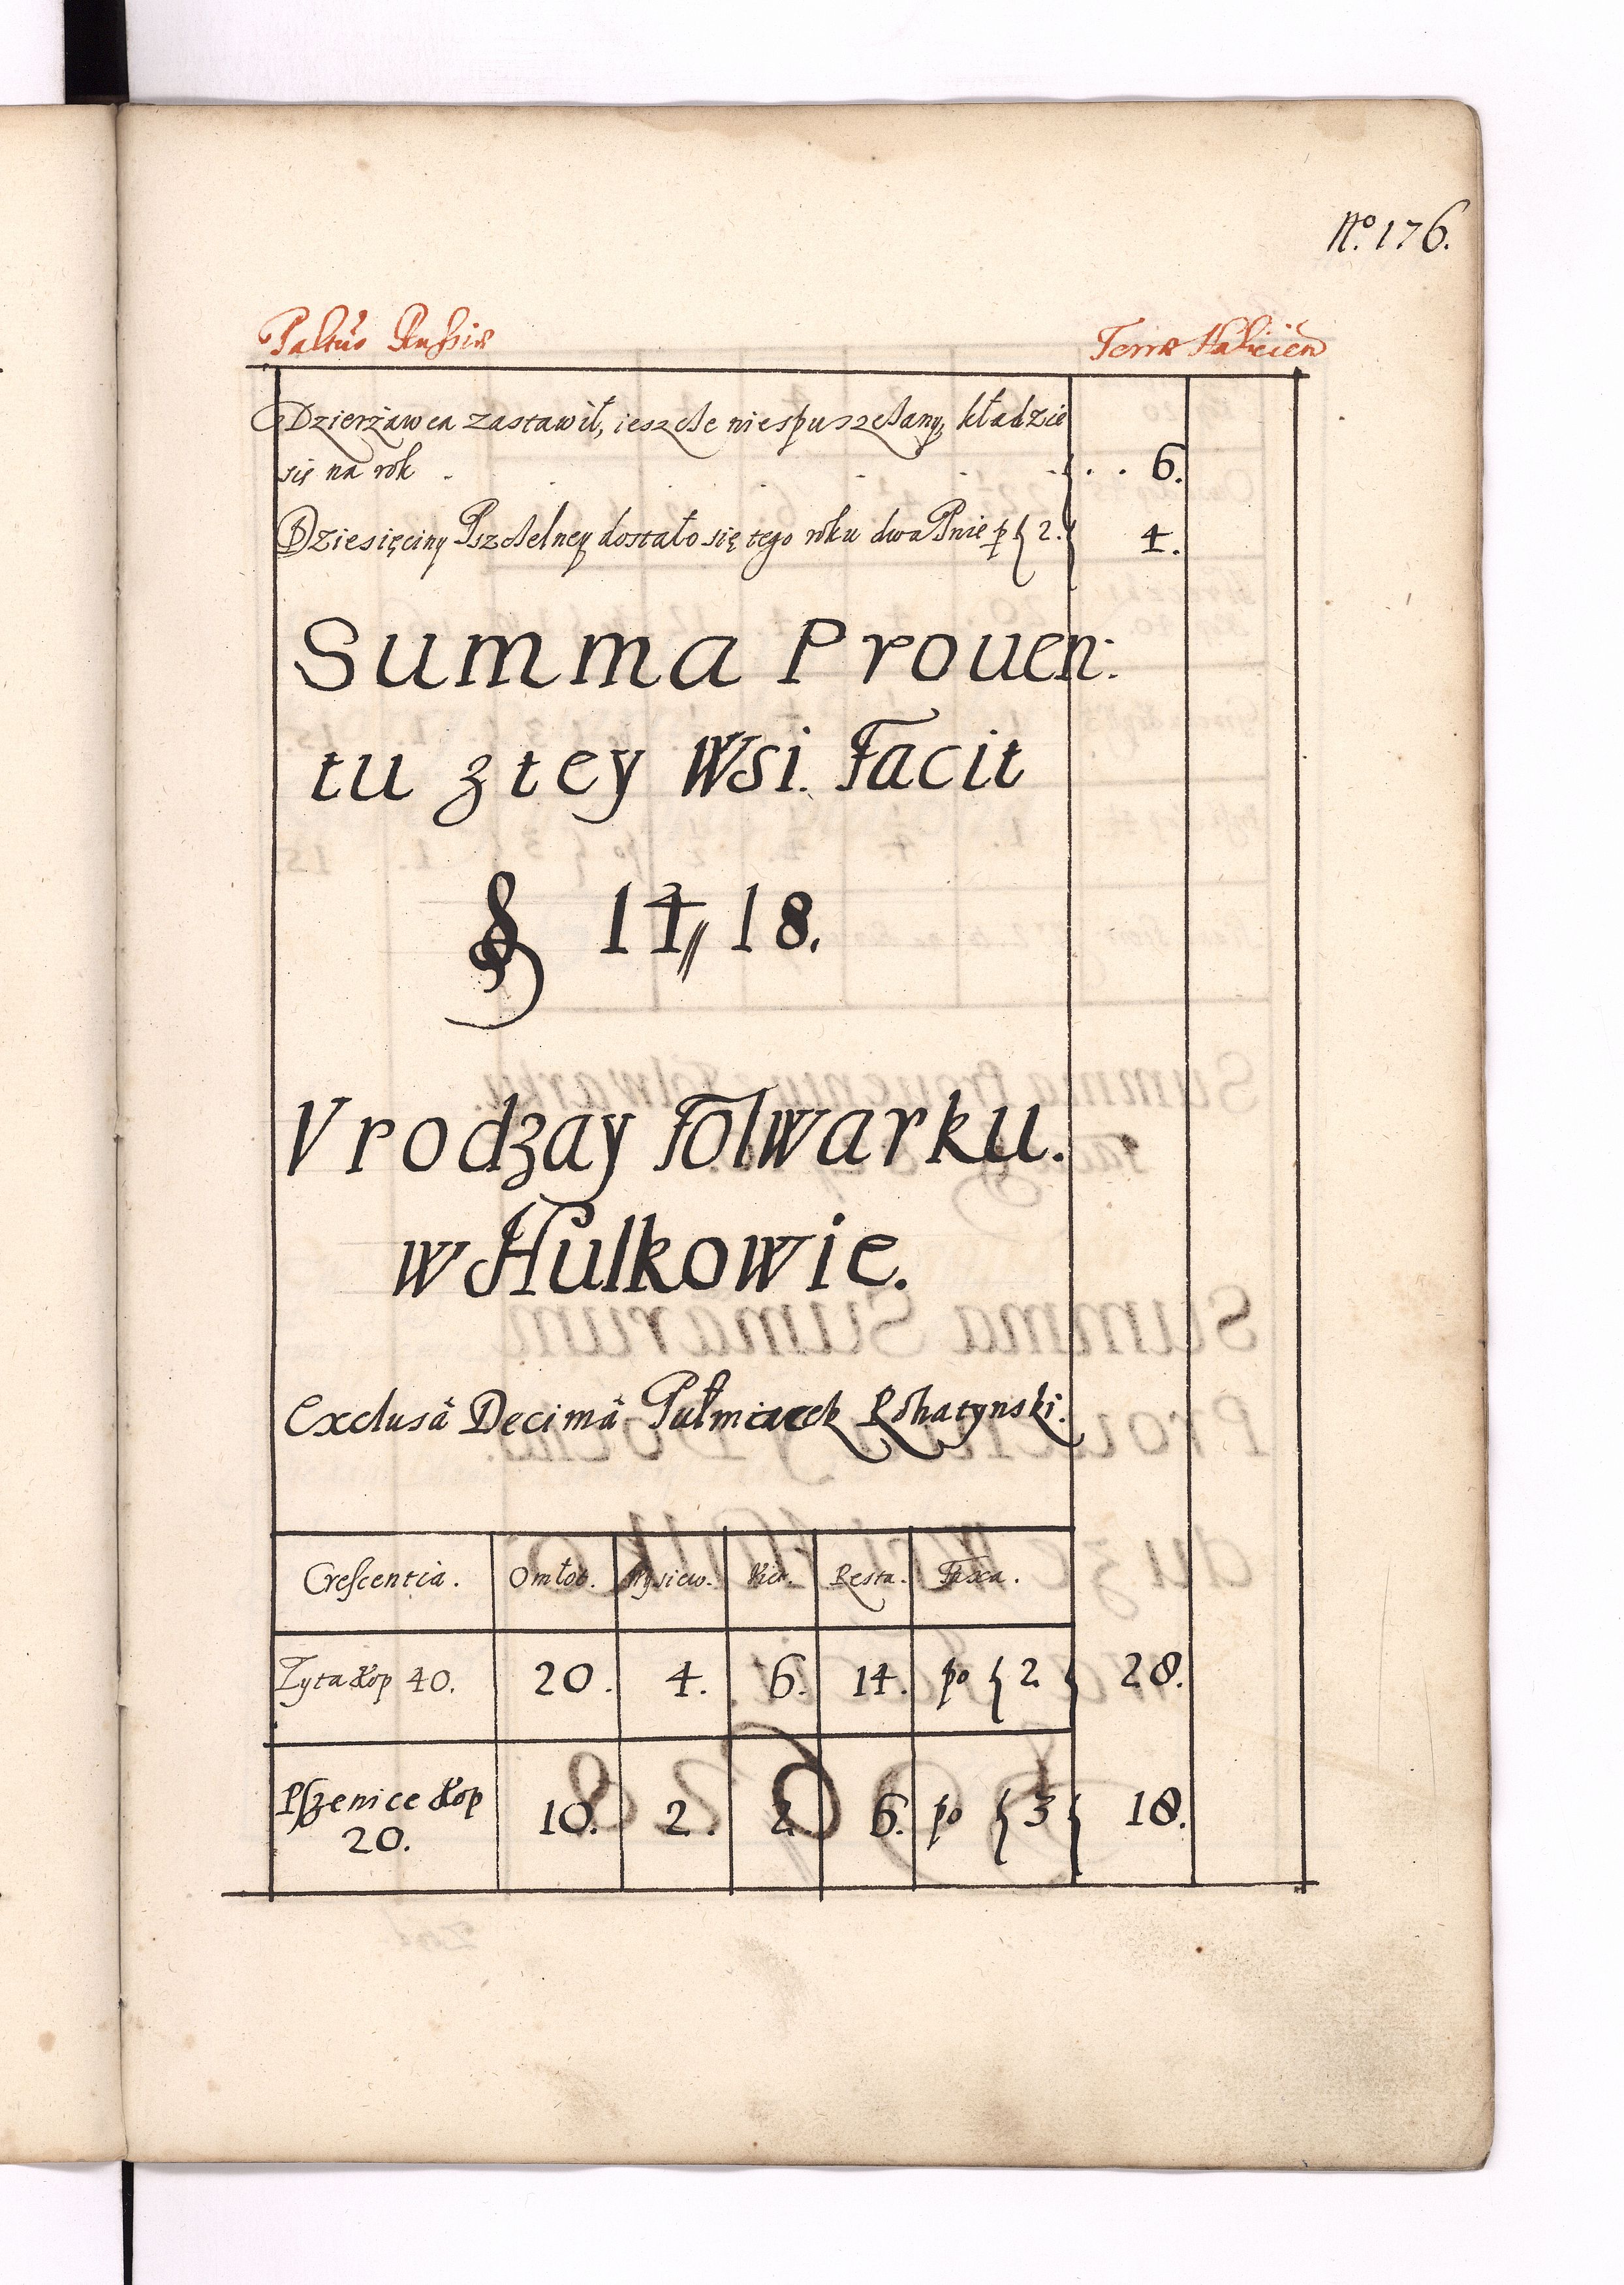 No. 176.
Paltûs Russiæ Terræ Halicien
Dzierżawca zastawił, ieszcze niespuszczany, kładzie
się na rok . . . . . . 6.
Dziesięciny Pszczelney dostało się tego roku dwa Pnie p { 2. { 4.
Summa Prouen:
tu z tey Wsi. Facit
14 // 18.
Vrodzay Folwarku.
w Hulkowie.
Exclusâ Decimâ Pułmiarek Rohatynski.
Crescentia. Omłot. Wysiew. Resta. Taxa.
Zyta Kop 40. 20. 4. 6. 14. po { 2 { 28.
Pszenice Kop 10. 2. 2. 6. po { 3 { 18.
20.